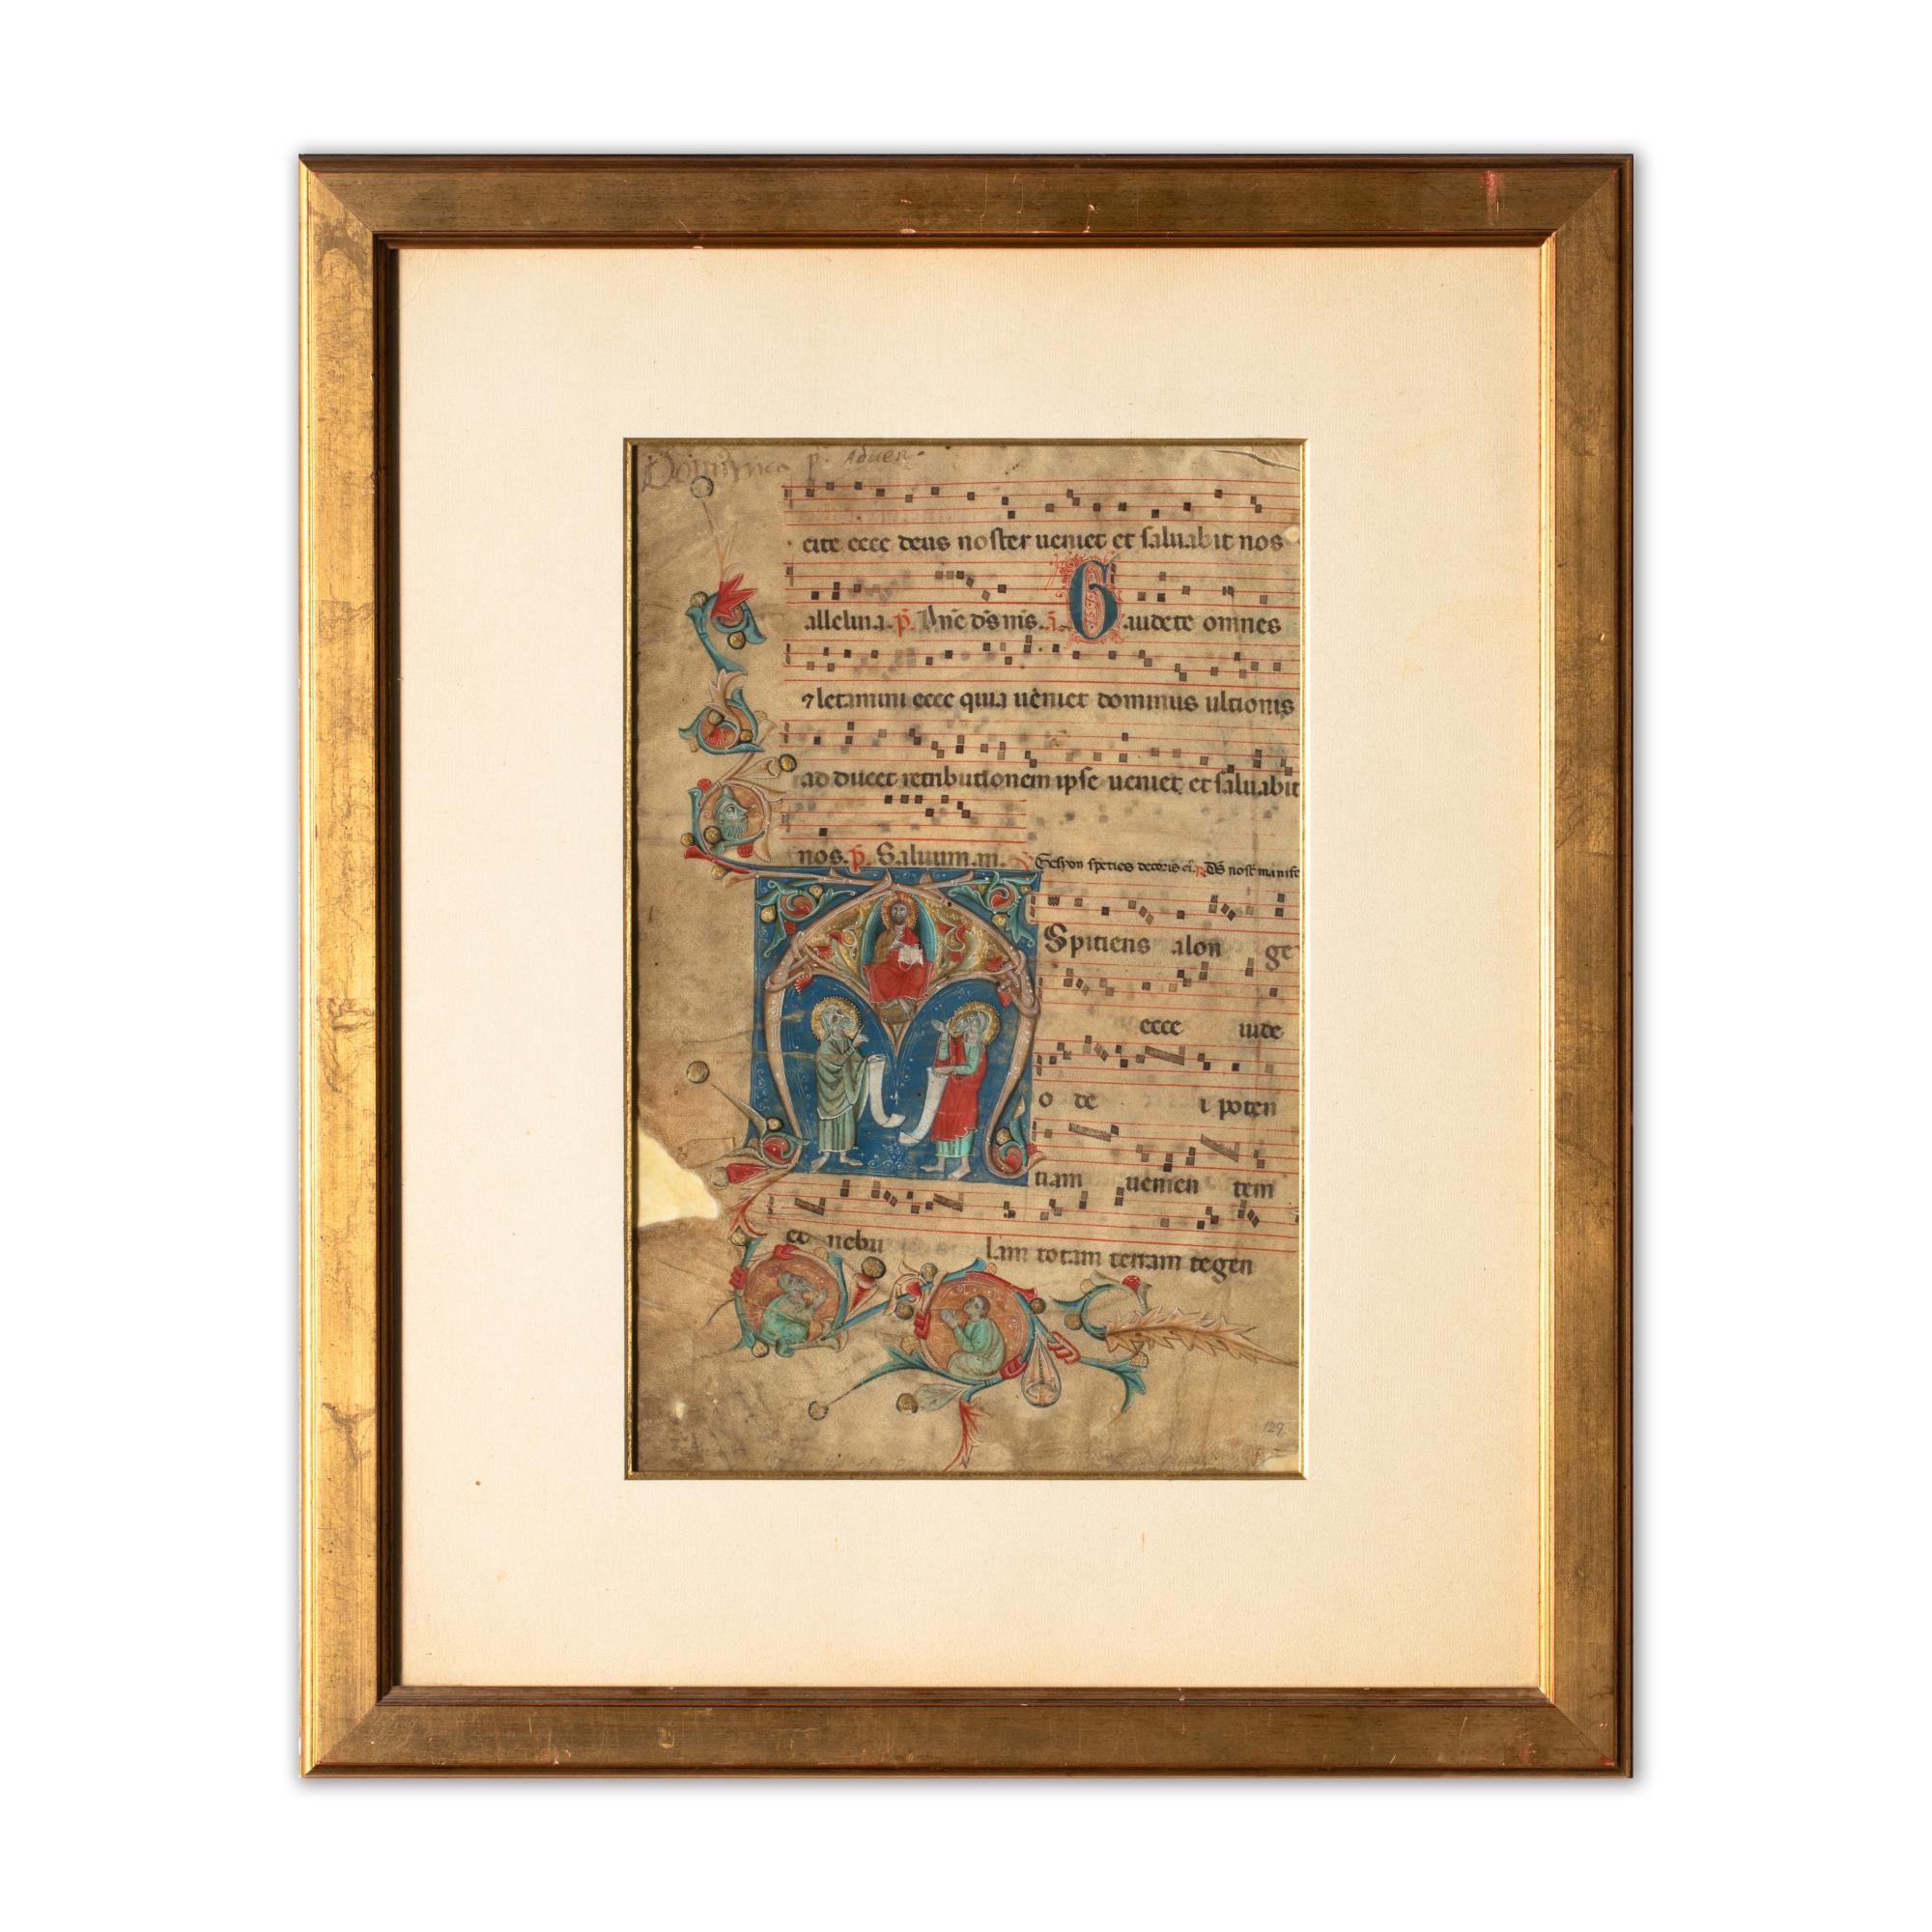 Dominica p. Aduen.
cite ecce deus noster ueniet et saluabit nos
alleluia. p. Ane ds ms. a. Gaudete omnes
⁊ letamini ecce quia ueniet dominus ultionis
ad ducet retributionem ipse ueniet et saluabit
nos. p. Saluum. m.
Ex syon species decoris ei. R Ds nost manife
Aspitiens alon ge
ecce uide
o de i poten
tiam uenien tem
et nebu lam totam terram tegen
129